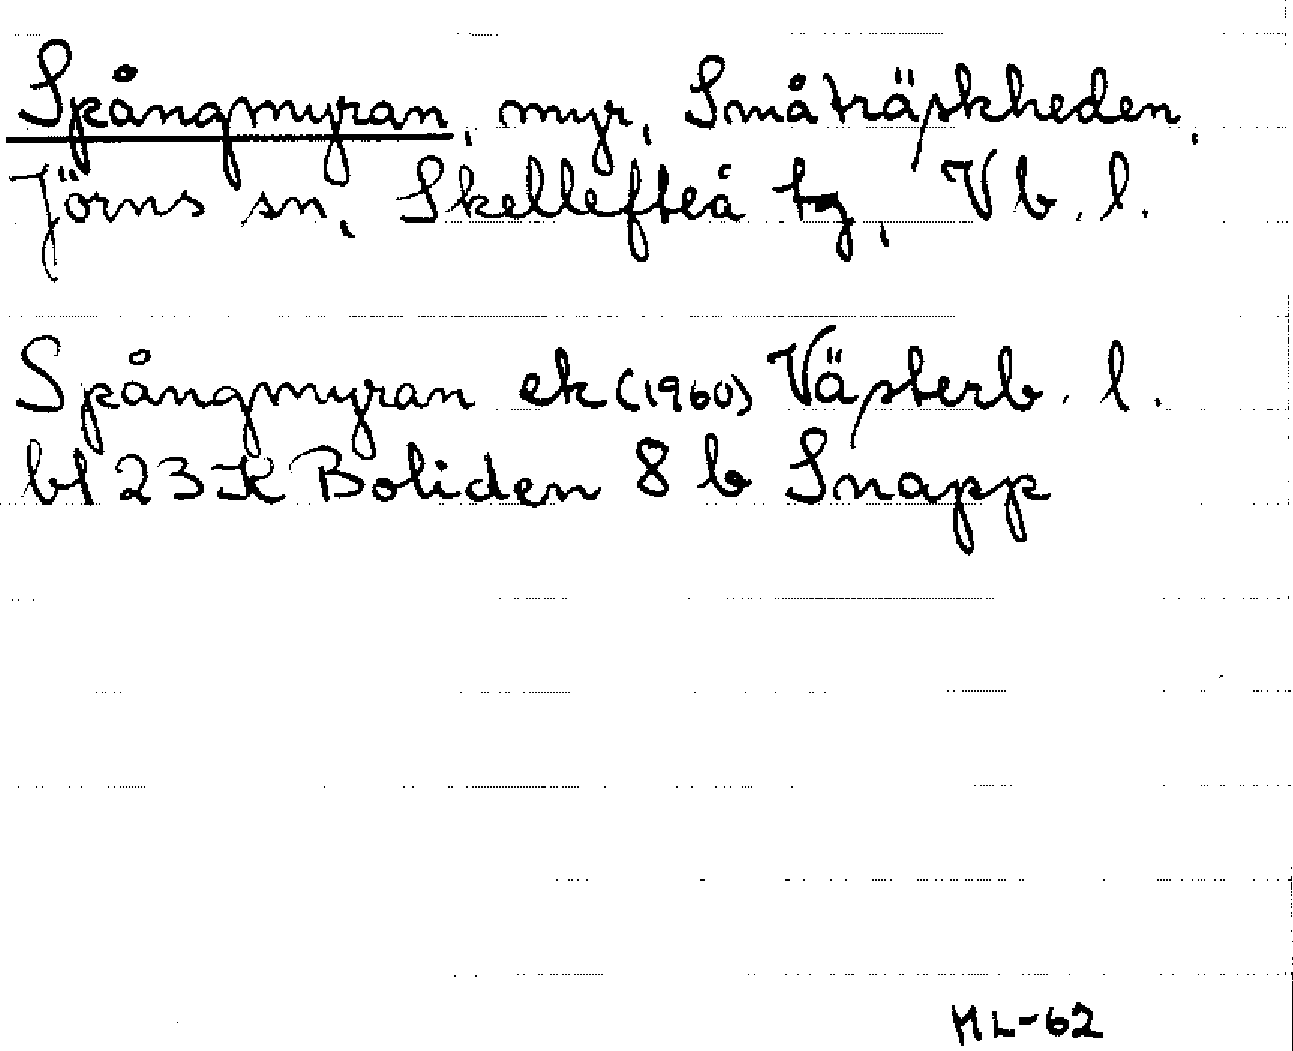 Spångmyran, myr, Småträskheden,
Jörns sn, Skellefteå tg, Vb. l.
Spångmyran ek (1960) Västerb. l.
bl 23 K Boliden 8 b Snapp
ML-62